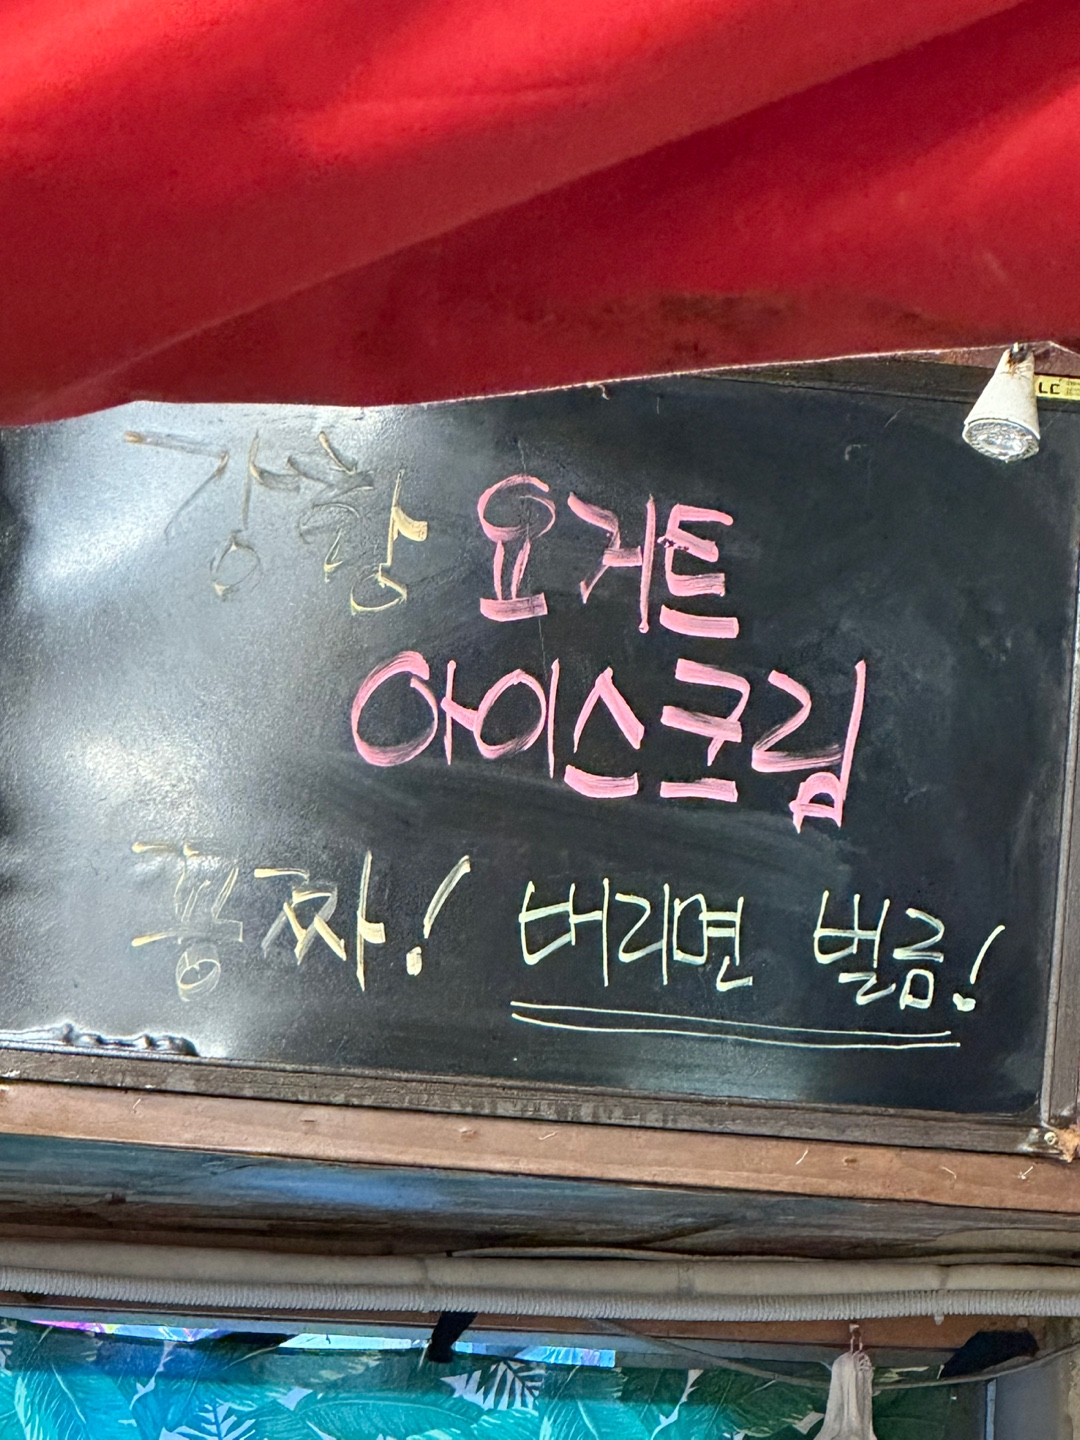 강황 요거트
아이스크림
꽁짜! 버리면 벌금!
LC